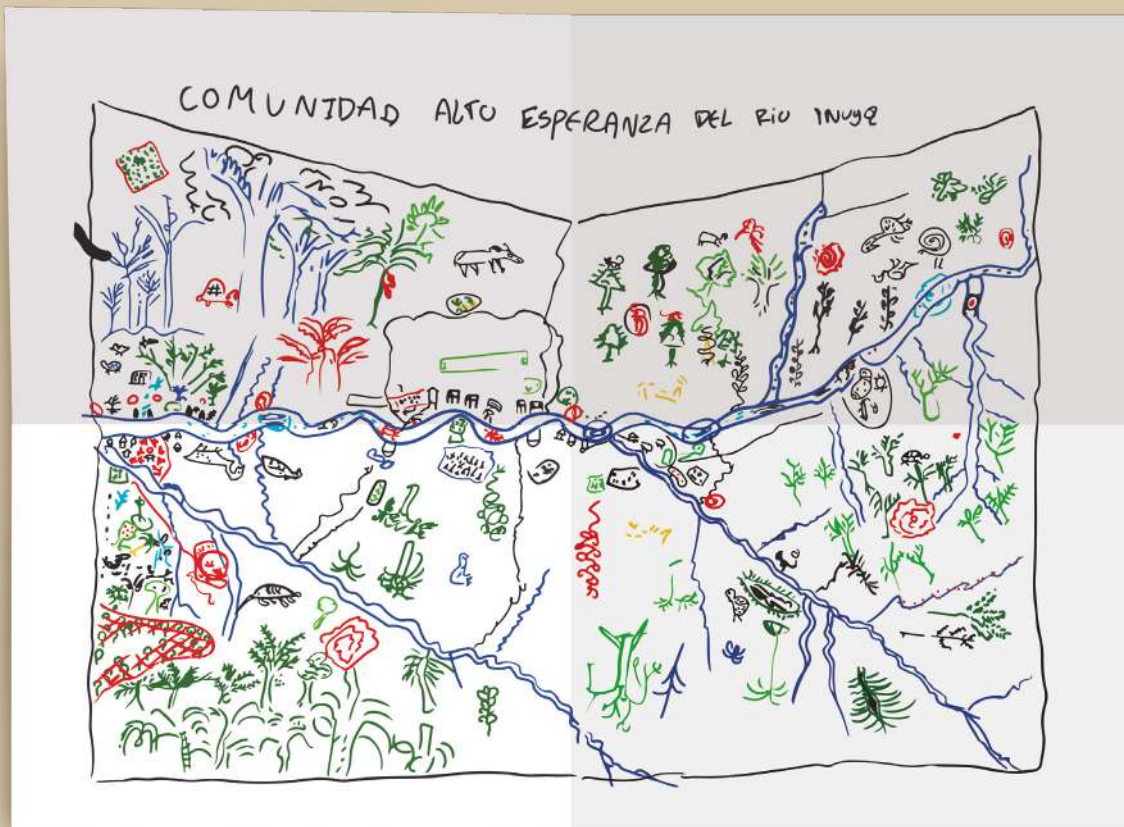 COMUNIDAD ALTO ESPERANZA DEL RIO INUYA